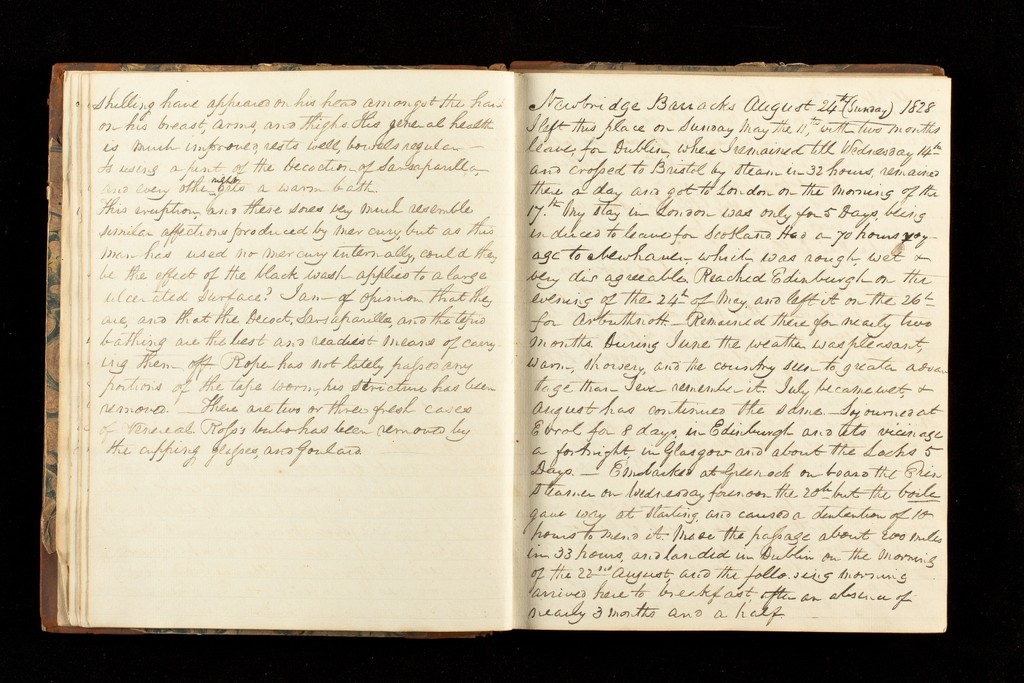 shilling have appeared on his head amongst the hair
on his breast, arms, and thighs. His general health
is much improved, rests well, bowels regular —
Is using a pint of the Decoction of Sarsaparilla
night
and every other a warm bath.
This eruption and these sores very much resemble
similar affections produced by mercury, but as this
man has used no mercury internally, could they
be the effect of the black wash applied to a large
ulcerated surface? I am of opinion that they
are, and that the Decoct. Sarsaparilla, and the tepid
bathing are the best and readiest means of carry-
ing them off. Roper has not lately passed any
portions of the tape worm, his stricture has been
removed — There are two or three fresh cases
of Venereal. Ross's bubo has been removed by
the cupping glasses, and Goulard
Newbridge Barracks August 24th (Sunday) 1828
I left this place on Sunday May the 11th, with two months
leave, for Dublin, where I remained till Wednesday 14th
and crossed to Bristol by steam in 32 hours, remained
there a day and got to London on the morning of the
17th. My stay in London was only for 5 Days, being
induced to leave for Scotland. Had a 70 hours voy-
age to Newhaven which was rough, wet &
very disagreeable. Reached Edinburgh on the
evening of the 24th of May, and left it on the 26th
for Arbuthnott — Remained there for nearly two
months. During June the weather was pleasant,
warm, showery, and the country seen to greater advan
tage than I ever remember it. July became wet, &
August has continued the same — Sojourned at
Errol for 8 days, in Edinburgh and its vicinage
a fortnight in Glasgow and about the Lochs 5
Days. — Embarked at Greenock on board the Erin
Steamer on Wednesday forenoon the 20th but the boiler
gave way at starting, and caused a detention of 10
hours to mend it. Made the passage about 200 miles
in 33 hours, and landed in Dublin on the morning
of the 22nd August, and the following morning
arrived here to breakfast, after an absence of
nearly 3 months and a half